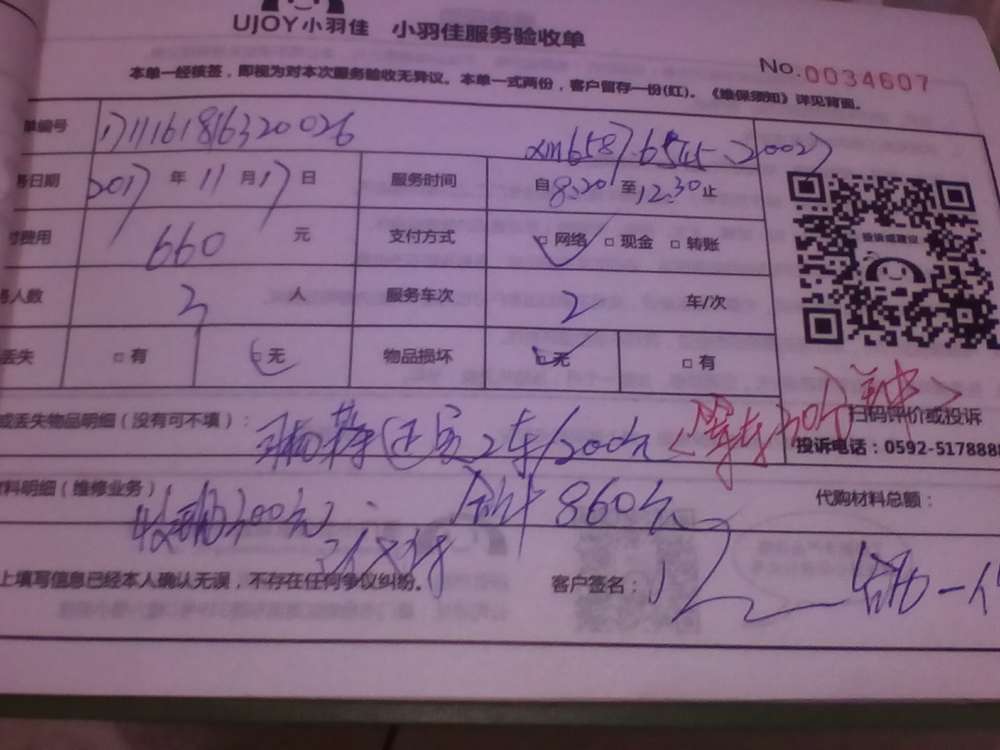 UJOY小羽佳 小羽佳服务验收单
No.0034607
本单一经核签，即视为对本次服务验收无异议。本单一式两份，客户留存一份(红)。《维保须知》详见背面。
单编号 1711161816320026
务日期 2017年11月17日 服务时间 自8:20至12:30止
费用 660元 支付方式 □网络 □现金 □转账
人数 3人 服务车次 2车/次
丢失 □有 □无 物品损坏 □无 □有
投诉或建议
或丢失物品明细（没有可不填）： 2车/200元
扫码评价或投诉
投诉电话：0592-5178888
料明细（维修业务） 300元 合计860元 代购材料总额：
上填写信息已经本人确认无误，不存在任何争议纠纷。 客户签名：